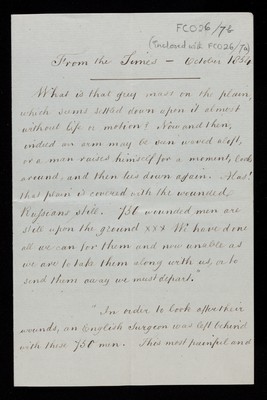 FC026/7b
(Enclosed with FC026/7a)
From the Times — October 1854
What is that grey mass on the plain,
which seems settled down upon it almost
without life or motion? Now and then,
indeed an arm may be seen waved aloft,
or a man raises himself for a moment, looks
around, and then lies down again. Alas!
that plain is covered with the wounded
Russians still. 750 wounded men are
still upon the ground xxx We have done
all we can for them and now unable as
we are to take them along with us, or to
send them away we must depart."
"In order to look after their
wounds, an English Surgeon was left behind
with these 750 men. This most painful and